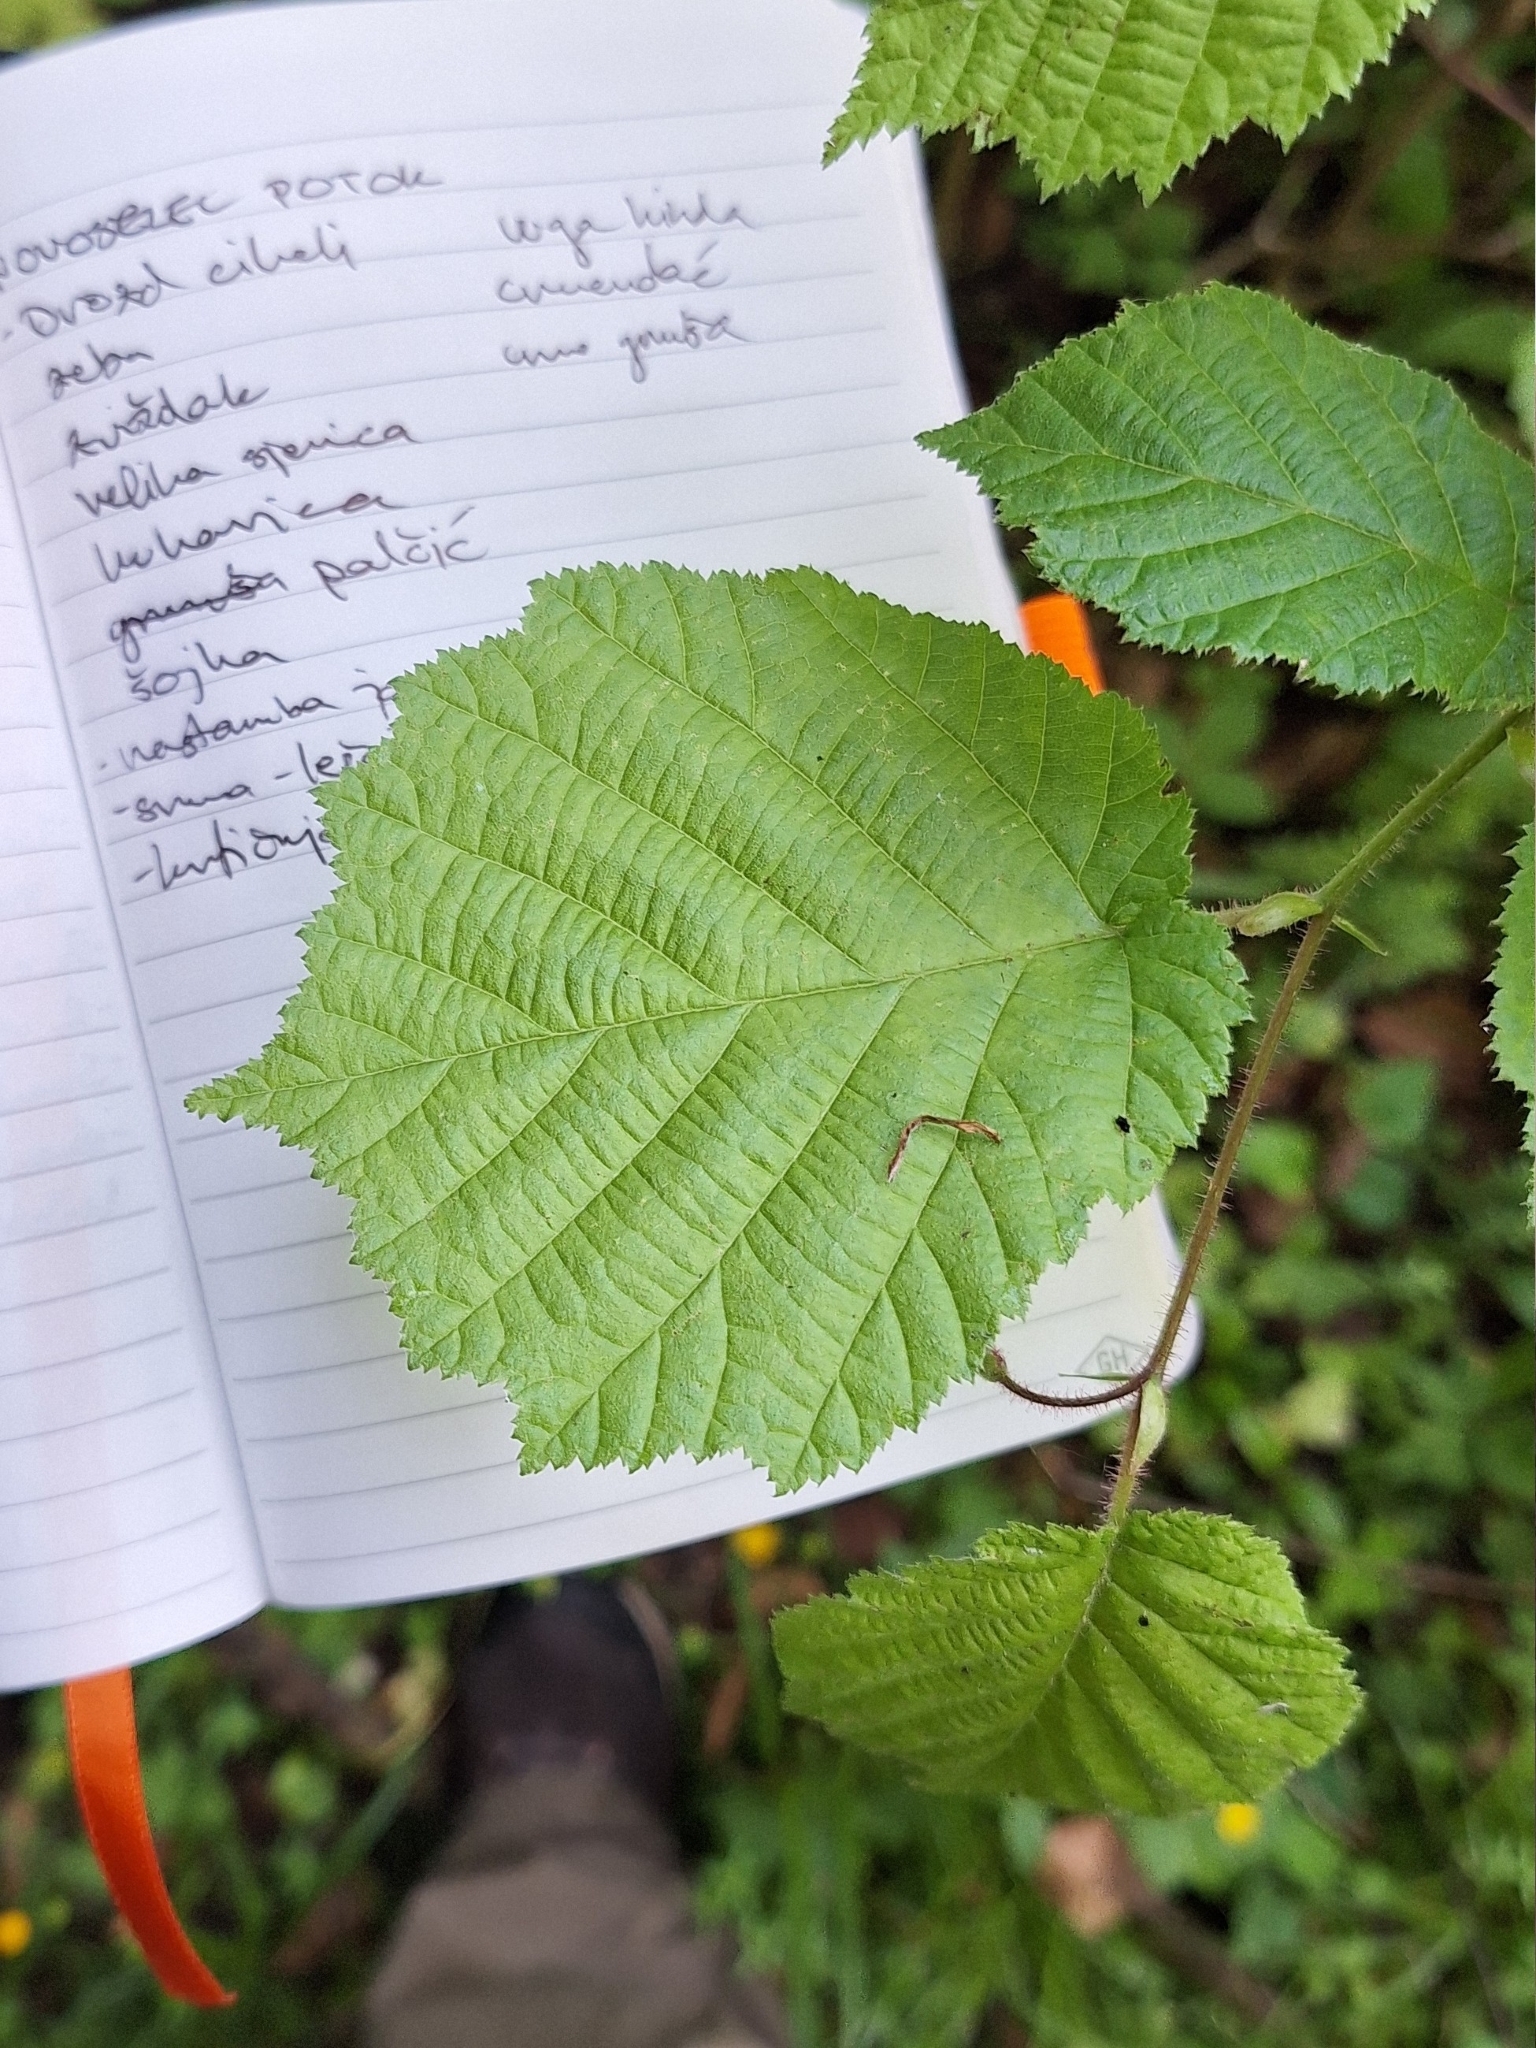 NOVOSELEC POTOK
- Drozd cikelj
zeba
zviždak
velika sjenica
kukavica
grmuša palčić
šojka
- nastamba
- srna -
vuga
crvendać
crno grmuša
GH